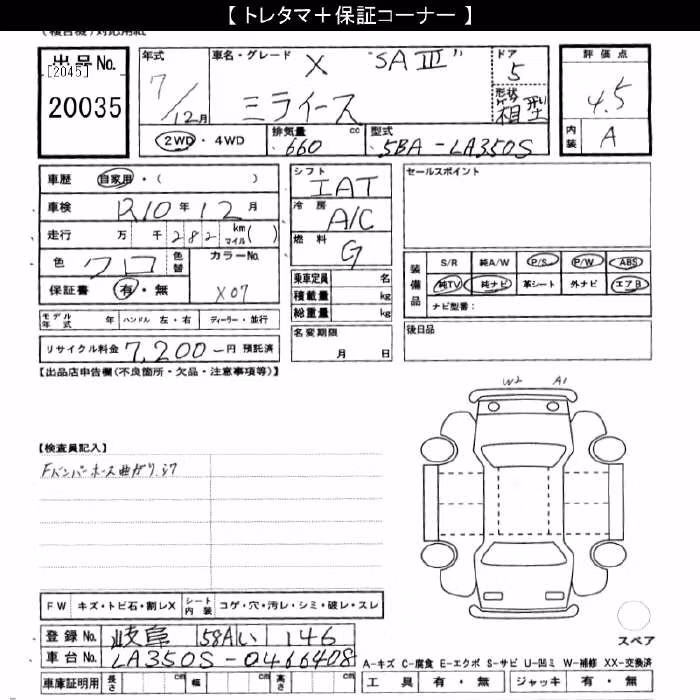 【 トレタマ＋保証コーナー 】
(複合機)対応用紙
出品No.
[2045]
20035
年式
7/12月
車名・グレード
X "SAⅢ"
ミライース
ドア
5
形状
箱型
2WD ・ 4WD
排気量 660 cc
型式 5BA-LA350S
評価点
4.5
内装 A
車歴 自家用・( )
車検 R10年12月
走行 万 千 2 8 2 km マイル( )
色 クロ 色替
カラーNo. X07
保証書 有・無
シフト
IAT
冷房
A/C
燃料
G
乗車定員 名
積載量 kg
総重量 kg
セールスポイント
装備品
S/R 純A/W P/S P/W ABS
純TV 純ナビ 革シート 外ナビ エアB
ナビ型番：
モデル年式 年 ハンドル 左・右 ディーラー・並行
名変期限
月 日
後日品
リサイクル料金 7,200-円 預託済
【出品店申告欄(不良箇所・欠品・注意事項等)】
W2 A1
【検査員記入】
Fバンパーホース曲がり.ヌケ
FW キズ・トビ石・割レX シート内装 コゲ・穴・汚レ・シミ・破レ・スレ
登録No. 岐阜 581 い 146
スペア
車台No. LA350S-0466408
A-キズ C-腐食 E-エクボ S-サビ U-凹ミ W-補修 XX-交換済
車庫証明用 長さ cm 幅 cm 高さ cm
工具 有・無 ジャッキ 有・無